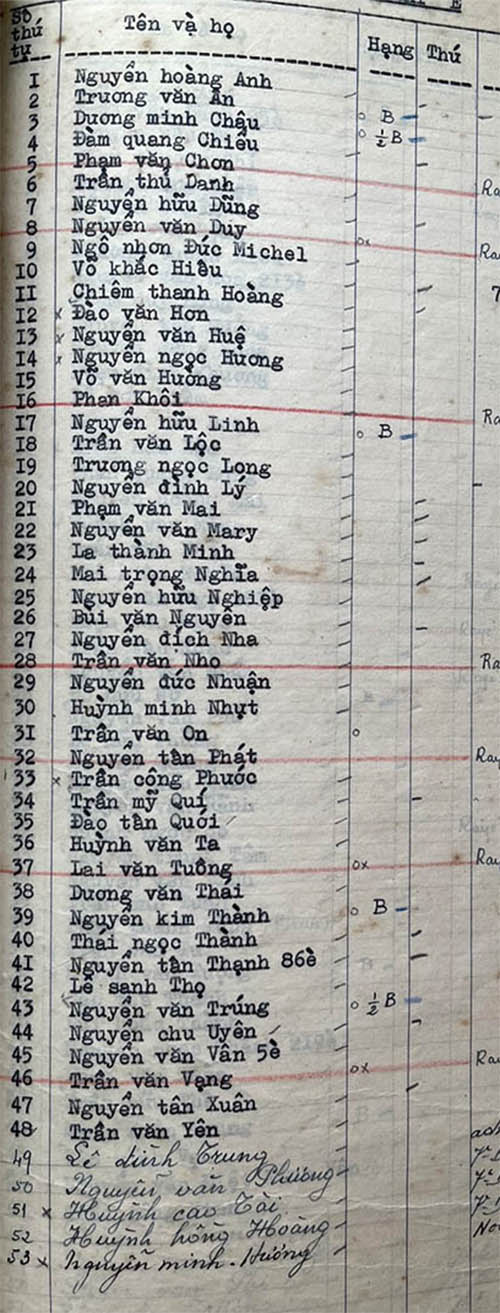 E
Số thứ tự Tên và họ Hạng Thứ
I Nguyễn hoàng Anh
2 Trương văn Ân
3 Dương minh Châu B
4 Đàm quang Chiểu ½ B
5 Phạm văn Chơn
6 Trần thủ Danh Ra
7 Nguyễn hữu Dũng
8 Nguyễn văn Duy
9 Ngô nhơn Đức Michel ox Ra
IO Võ khắc Hiếu
II Chiêm thanh Hoàng 7
I2 x Đào văn Hơn
I3 x Nguyễn văn Huệ
I4 x Nguyễn ngọc Hương
I5 Võ văn Hường
I6 Phan Khôi Ra
I7 Nguyễn hữu Linh B
I8 Trần văn Lộc
I9 Trương ngọc Long
20 Nguyễn đình Lý
2I Phạm văn Mai
22 Nguyễn văn Mary
23 La thành Minh
24 Mai trọng Nghĩa
25 Nguyễn hữu Nghiệp
26 Bùi văn Nguyên
27 Nguyễn đích Nha
28 Trần văn Nho Ra
29 Nguyễn đức Nhuận
30 Huỳnh minh Nhựt
3I Trần văn On o
32 Nguyễn tấn Phát Ray
33 x Trần công Phước
34 Trần mỹ Quí
35 Đào tấn Quới
36 Huỳnh văn Ta
37 Lai văn Tuông ox Ra
38 Dương văn Thái
39 Nguyễn kim Thành o B
40 Thái ngọc Thành
4I Nguyễn tấn Thạnh 86è
42 Lê sanh Thọ
43 Nguyễn văn Trúng o ½ B
44 Nguyễn chu Uyên
45 Nguyễn văn Vân 5è
46 Trần văn Vạng ox Ra
47 Nguyễn tấn Xuân
48 Trần văn Yên
49 Lê đình Trung
50 Nguyễn văn Phương
51 x Huỳnh cao Tài
52 Huỳnh hồng Hoàng No
53 x Nguyễn minh-Hướng